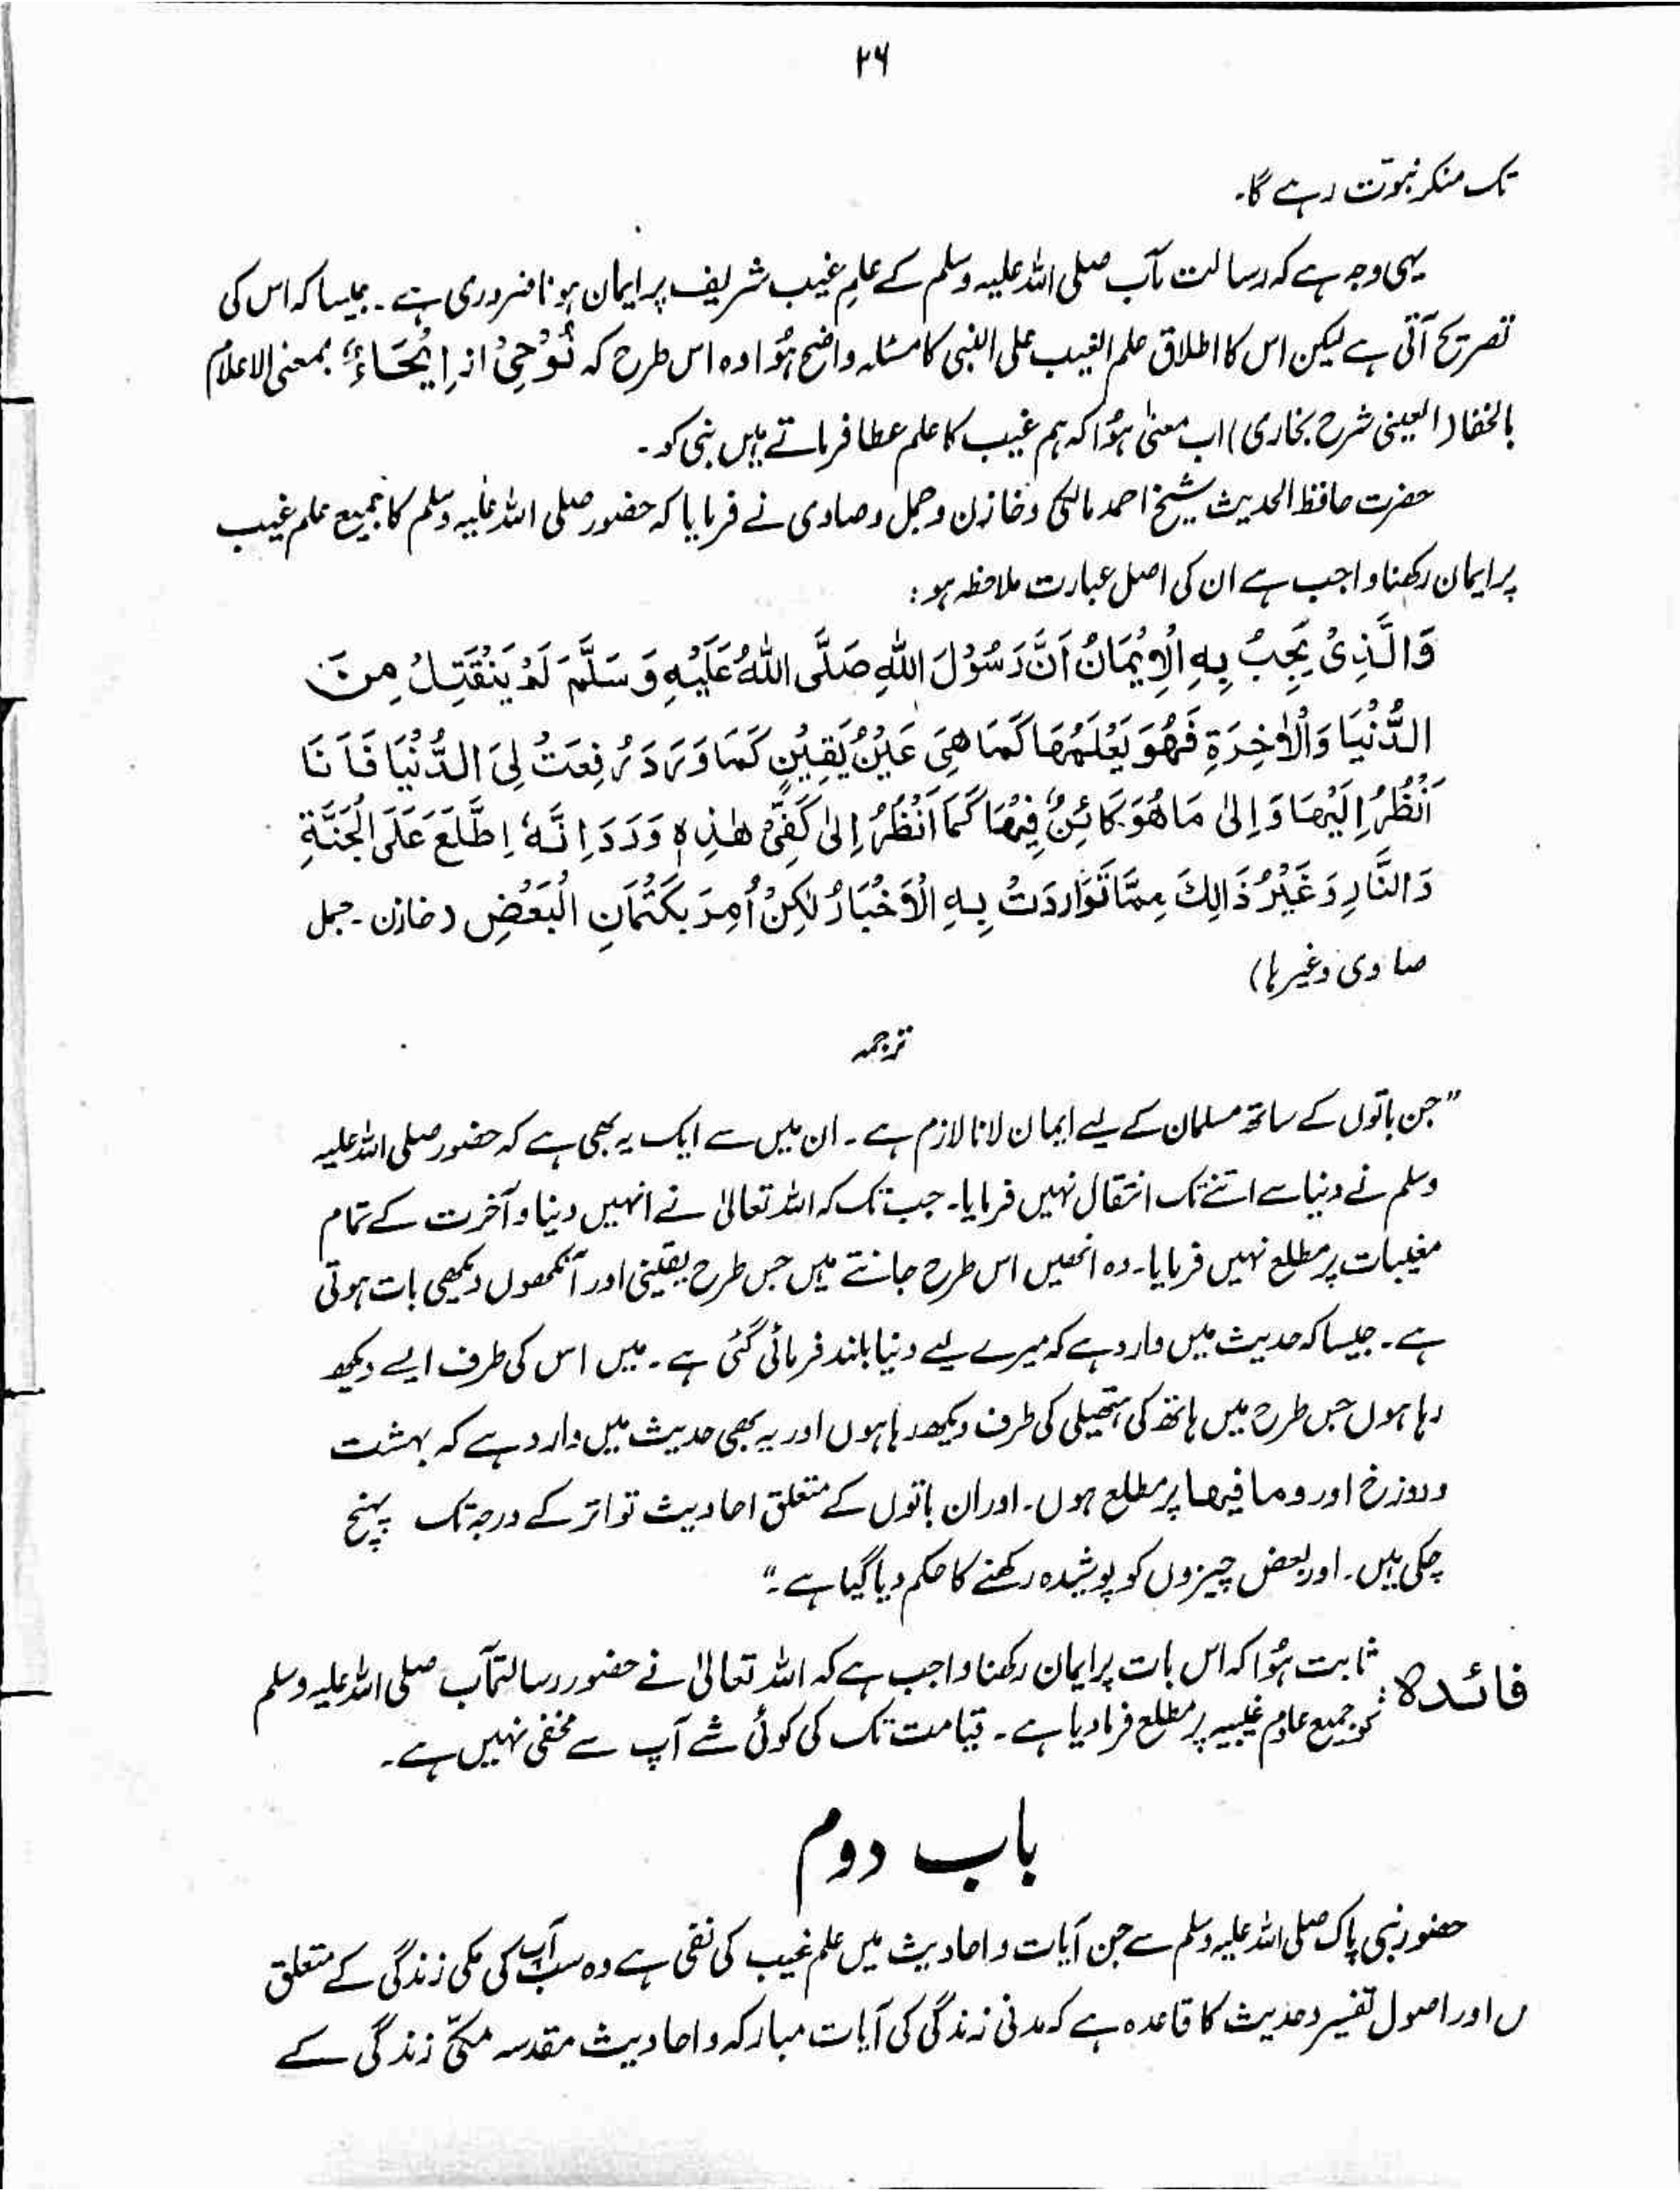 ۲۶
تک منکر نبوّت رہے گا۔
یہی وجہ ہے کہ رسالت مآب صلی اللہ علیہ وسلم کے علمِ غیب شریف پر ایمان ہونا ضروری ہے۔ جیسا کہ اس کی
تصریح آتی ہے لیکن اس کا اطلاق علم الغیب علی النبی کا مسئلہ واضح ہُوا وہ اس طرح کہ نُوْحِیْ از اِیْحَاءٌ بمعنی الاعلام
بالخفا (العینی شرح بخاری) اب معنیٰ ہُوا کہ ہم غیب کا علم عطا فرماتے ہیں نبی کو۔
حضرت حافظ الحدیث شیخ احمد مالکی و خازن و جمل و صاوی نے فرمایا کہ حضور صلی اللہ علیہ وسلم کا جمیع علم غیب
پر ایمان رکھنا واجب ہے ان کی اصل عبارت ملاحظہ ہو:
وَالَّذِیْ یَجِبُ بِہِ الْاِیْمَانُ اَنَّ رَسُوْلَ اللّٰہِ صَلَّی اللّٰہُ عَلَیْہِ وَسَلَّمَ لَمْ یَنْقَتِلْ مِنَ
الدُّنْیَا وَالْاٰخِرَۃِ فَھُوَ یَعْلَمُھَا کَمَا ھِیَ عَیْنُ یَقِیْنٍ کَمَا وَرَدَ رُفِعَتْ لِیَ الدُّنْیَا فَاَنَا
اَنْظُرُ اِلَیْھَا وَ اِلٰی مَا ھُوَ کَائِنٌ فِیْھَا کَمَا اَنْظُرُ اِلٰی کَفِّیْ ھٰذِہٖ وَ وَرَدَ اِنَّہٗ اِطَّلَعَ عَلَی الْجَنَّۃِ
وَالنَّارِ وَغَیْرُ ذَالِکَ مِمَّا تَوَارَدَتْ بِہِ الْاَخْبَارُ لٰکِنْ اُمِرَ بِکَتْمَانِ الْبَعْضِ (خازن۔ جمل
صاوی وغیرہا)
ترجمہ
"جن باتوں کے ساتھ مسلمان کے لیے ایمان لانا لازم ہے۔ ان میں سے ایک یہ بھی ہے کہ حضور صلی اللہ علیہ
وسلم نے دنیا سے اتنے تک انتقال نہیں فرمایا۔ جب تک کہ اللہ تعالیٰ نے انہیں دنیا و آخرت کے تمام
مغیبات پر مطلع نہیں فرمایا۔ وہ انھیں اس طرح جانتے ہیں جس طرح یقینی اور آنکھوں دیکھی بات ہوتی
ہے۔ جیسا کہ حدیث میں وارد ہے کہ میرے لیے دنیا بلند فرمائی گئی ہے۔ میں اس کی طرف ایسے دیکھ
رہا ہوں جس طرح میں ہاتھ کی ہتھیلی کی طرف دیکھ رہا ہوں اور یہ بھی حدیث میں وارد ہے کہ بہشت
و دوزخ اور وما فیھا پر مطلع ہوں۔ اور ان باتوں کے متعلق احادیث تواتر کے درجہ تک پہنچ
چکی ہیں۔ اور بعض چیزوں کو پوشیدہ رکھنے کا حکم دیا گیا ہے۔"
فائدہ: ثابت ہُوا کہ اس بات پر ایمان رکھنا واجب ہے کہ اللہ تعالیٰ نے حضور رسالتمآب صلی اللہ علیہ وسلم
کو جمیع علوم غیبیہ پر مطلع فرمادیا ہے۔ قیامت تک کی کوئی شے آپ سے مخفی نہیں ہے۔
باب دوم
حضور نبی پاک صلی اللہ علیہ وسلم سے جن آیات و احادیث میں علم غیب کی نفی ہے وہ سب آپ کی مکی زندگی کے متعلق
ں اور اصول تفسیر و حدیث کا قاعدہ ہے کہ مدنی زندگی کی آیات مبارکہ و احادیث مقدسہ مکّی زندگی کے